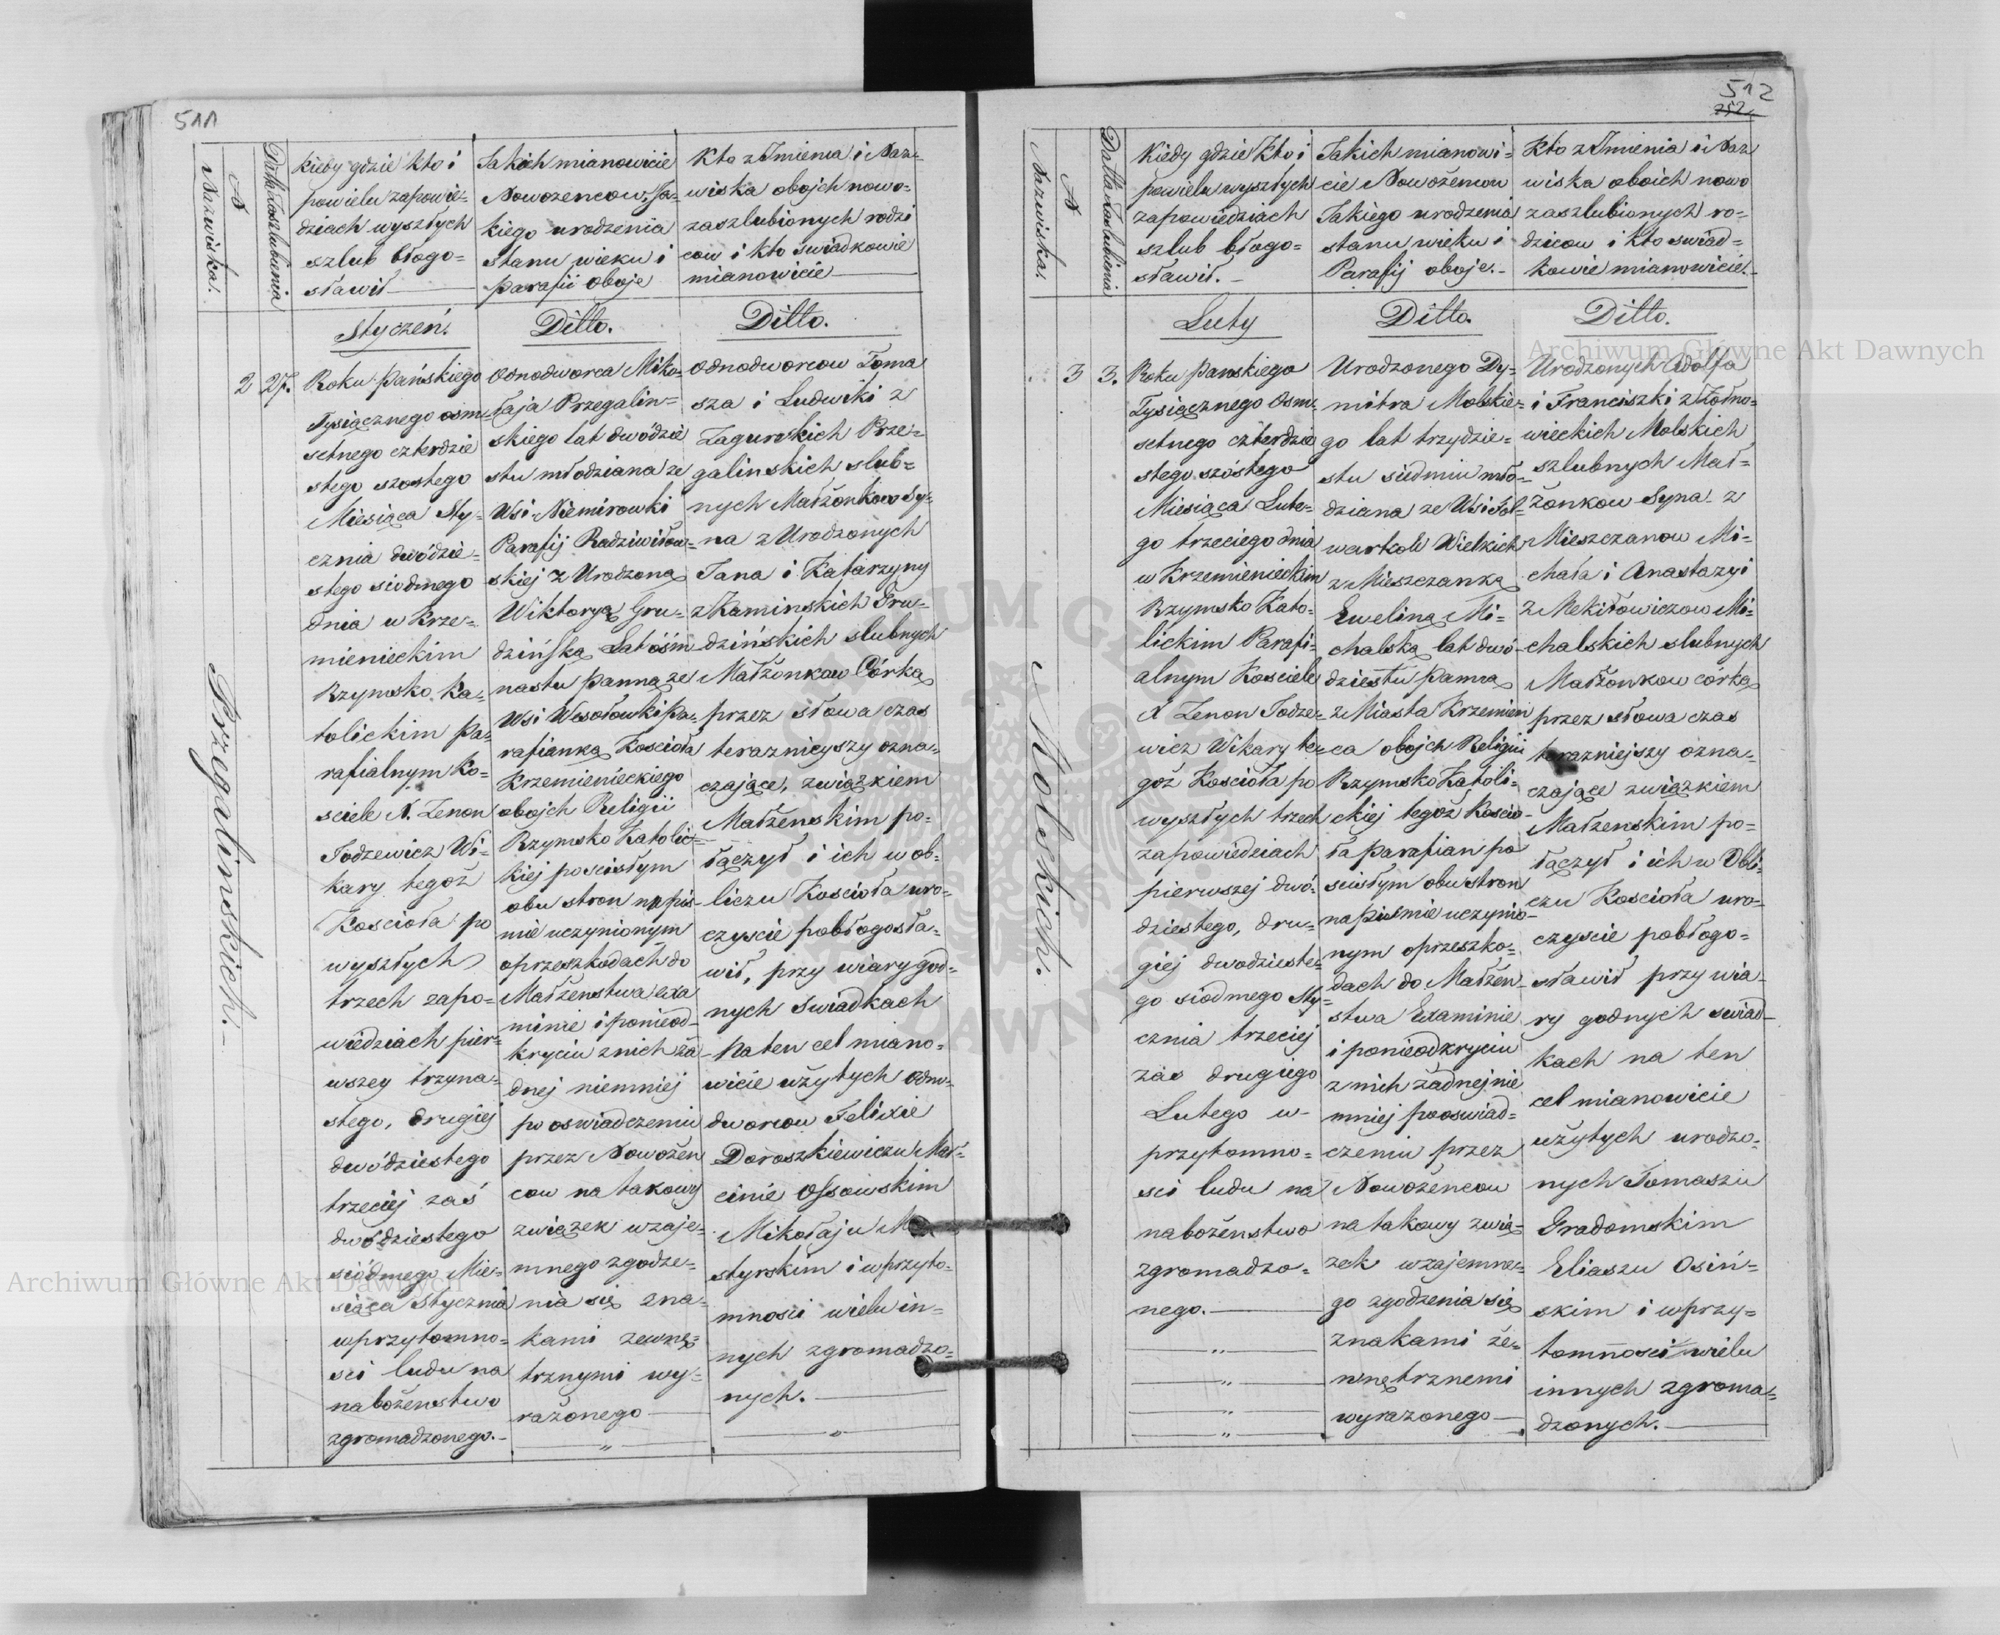 511
Nazwiska.
N
Datta Zaszlubienia
Kiedy gdzie kto i
powielu zapowie-
dziach wyszłych
szlub błogo-
sławił
Jakich mianowicie
Nowożencow, Ja-
kiego urodzenia
stanu wieku i
parafii oboje
Kto z Imienia i Naz-
wiska obojch nowo-
zaszlubionych rodzi
cow i kto swiadkowie
mianowicie
Styczeń.
Ditto.
Ditto.
Przegalinskich.
2
27.
Roku Pańskiego
Tysiącznego osm-
setnego czterdzie
stego szostego
Miesiąca Sty-
cznia dwódzie-
stego siodmego
dnia w Krze-
mienieckim
Rzymsko Ka-
tolickim Pa-
rafialnym Ko-
sciele X. Zenon
Jodzewicz Wi-
kary tegoż
Koscioła po
wyszłych
trzech zapo-
wiedziach pier-
wszey trzyna-
stego, drugiej
dwódziestego
trzeciej zaś
dwódziestego
siódmego Mie-
siąca Stycznia
wprzytomno-
sci ludu na
nabożenstwo
zgromadzonego.
Odnodworca Miko-
łaja Przegalin-
skiego lat dwódzie
stu młodziana ze
Wsi Niemirowki
Parafij Radziwiłow-
skiej z Urodzoną
Wiktoryą Gru-
dzińską Lat óśm
nastu panną ze
Wsi Wesołowki pa-
rafianką Koscioła
Krzemienieckiego
obojch Religii
Rzymsko Katolic-
kiej po scisłym
obu stron napis-
mie uczynionym
oprzeszkodach do
Małżenstwa exa
minie i ponieod-
kryciu znich ża
dnej niemniej
po oswiadczeniu
przez Nowożen
cow na takowy
związek wzaje-
mnego zgodze-
nia się zna-
kami zewnę-
trznymi wy-
rażonego
Odnodworcow Toma
sza i Ludwiki z
Zagurskich Prze-
galinskich slub-
nych Małżonkow Sy-
na z Urodzonych
Jana i Katarzyny
z Kaminskich Gru-
dzińskich slubnych
Małżonkow Córką
przez słowa czas
teraznieyszy ozna-
czające, związkiem
Małżenskim po-
łączył i ich w ob-
liczu Koscioła uro-
czyscie pobłogosła-
wił, przy wiary god-
nych Swiadkach
na ten cel miano-
wicie użytych odno-
dworcow Felixie
Doroszkiewiczu Mar-
cinie Ossowskim
Mikołaju
styrskim i wprzyto-
mnosci wielu in-
nych zgromadzo-
nych.
512
252
Nazwiska.
N
Datta Zaslubienia
Kiedy gdzie Kto i
powielu wyszłych
zapowiedziach
szlub błogo-
sławił.
Jakich mianowi-
cie Nowożencow
Jakiego urodzenia
stanu wieku i
Parafij oboje.
Kto z Imienia i Naz
wiska oboich nowo
zaszlubionych ro-
dzicow i kto swiad-
kowie mianowicie.
Luty
Ditto.
Ditto.
Molskich.
3
3.
Roku Panskiego
Tysiącznego Osm-
setnego czterdzie
stego szóstego
Miesiąca Lute-
go trzeciego dnia
w Krzemienieckim
Rzymsko Kato-
lickim Parafi-
alnym Kosciele
X Zenon Jodze-
wicz Wikary te-
goż Koscioła po
wyszłych trzech
zapowiedziach
pierwszej dwó-
dziestego, dru-
giej dwodzieste-
go siodmego Sty-
cznia trzeciej
zaś drugiego
Lutego w-
przytomno-
sci ludu na
nabożenstwo
zgromadzo-
nego.
Urodzonego Dy-
mitra Molskie-
go lat trzydzie-
stu siedmiu mło-
dziana ze Wsi Fol-
warkow Wielkich
z Mieszczanką
Eweliną Mi-
chalską lat dwó-
dziestu panną
z Miasta Krzemien
ca obojch Religii
Rzymsko Katoli-
ckiej tegoż Koscio-
ła parafian po
scisłym obu stron
na pismie uczynio-
nym oprzeszko-
dach do Małżen-
stwa Examinie
i ponieodkryciu
z nich żadnej nie
mniej pooswiad-
czeniu przez
Nowożencow
na takowy zwią-
zek wzajemne-
go zgodzenia się
znakami ze-
wnętrznemi
wyrazonego
Urodzonych Adolfa
i Franciszki z Żołno-
wieckich Molskich
szlubnych Mał-
żonkow Syna z
Mieszczanow Mi-
chała i Anastazyi
z Mekiłowiczow Mi-
chalskich slubnych
Małżonkow corką
przez słowa czas
terazniejszy ozna-
czające związkiem
Małzenskim po-
łączył i ich w Obli-
czu Kosciola uro-
czyscie pobłogo-
sławił przy wia-
ry godnych swiad-
kach na ten
cel mianowicie
użytych urodzo-
nych Tomaszu
Gradomskim
Eliaszu Osiń-
skim i wprzy-
tomnosci wielu
innych zgroma-
dzonych.
Archiwum Główne Akt Dawnych
Archiwum Główne Akt Dawnych